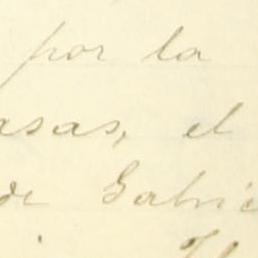 por la
asas, el
de Gabrie